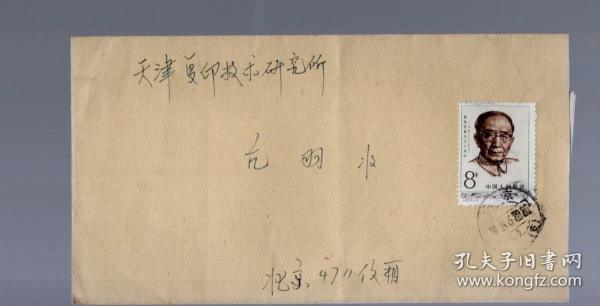 天津复印技术研究所
明收
北京4711信箱
8分
中国人民邮政
京
孔夫子旧书网
www.kongfz.com